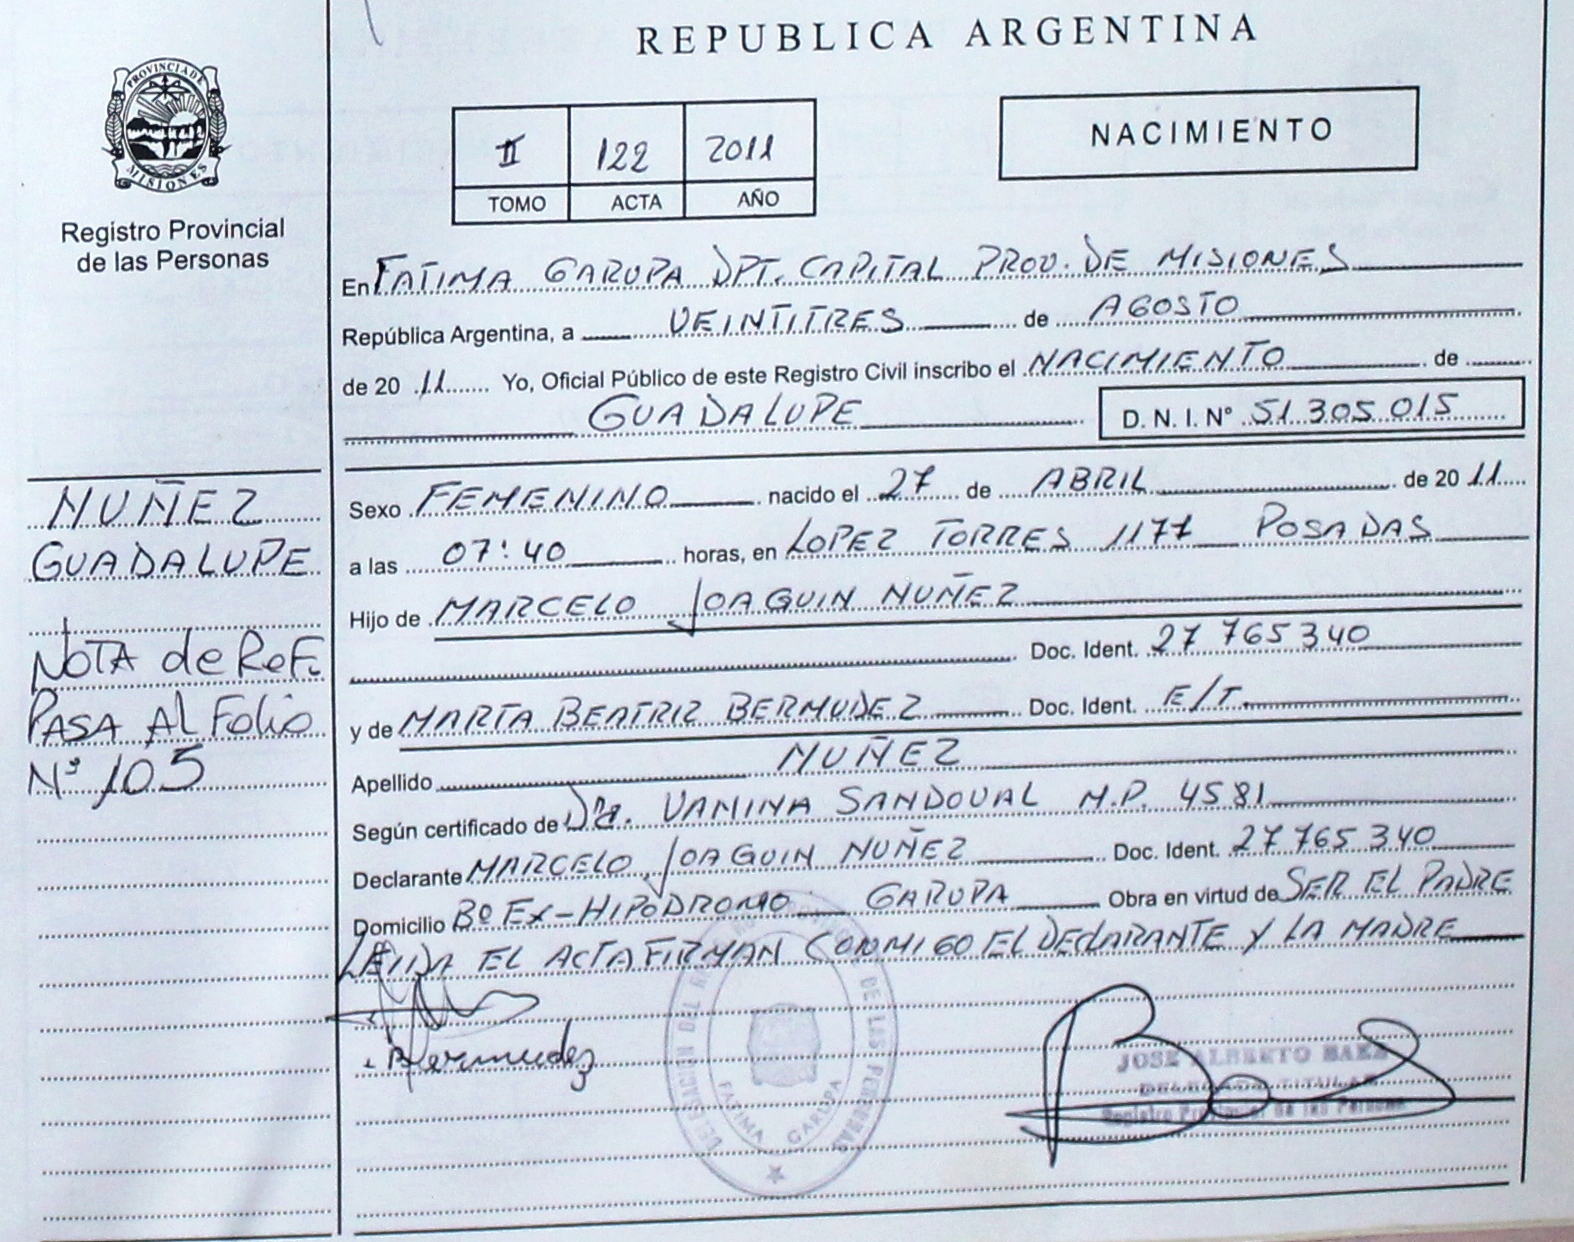 REPUBLICA ARGENTINA
PROVINCIA DE
MISIONES
Registro Provincial
de las Personas
II 122 2011
TOMO ACTA AÑO
NACIMIENTO
En FATIMA GARUPA DPT. CAPITAL PROV. DE MISIONES
República Argentina, a VEINTITRES de AGOSTO
de 20 11 Yo, Oficial Público de este Registro Civil inscribo el NACIMIENTO de
GUADALUPE D. N. I. Nº 51.305.015
Sexo FEMENINO nacido el 27 de ABRIL de 20 11
a las 07:40 horas, en LOPEZ TORRES 1177 POSADAS
Hijo de MARCELO JOAQUIN NUÑEZ
Doc. Ident. 27 765 340
y de MARTA BEATRIZ BERMUDEZ Doc. Ident. E/T.
Apellido NUÑEZ
Según certificado de Dra. VANINA SANDOVAL M.P. 4581
Declarante MARCELO JOAQUIN NUÑEZ Doc. Ident. 27 765 340
Domicilio Bº EX-HIPODROMO GARUPA Obra en virtud de SER EL PADRE
LEIDA EL ACTA FIRMAN CONMIGO EL DECLARANTE Y LA MADRE
Bermudez
DE LAS PERSONAS
FATIMA GARUPA
JOSE ALBERTO BAEZ
DELEGADO TITULAR
Registro Provincial de las Personas
NUÑEZ
GUADALUPE
NOTA de REF.
PASA AL FOLIO
Nº 105